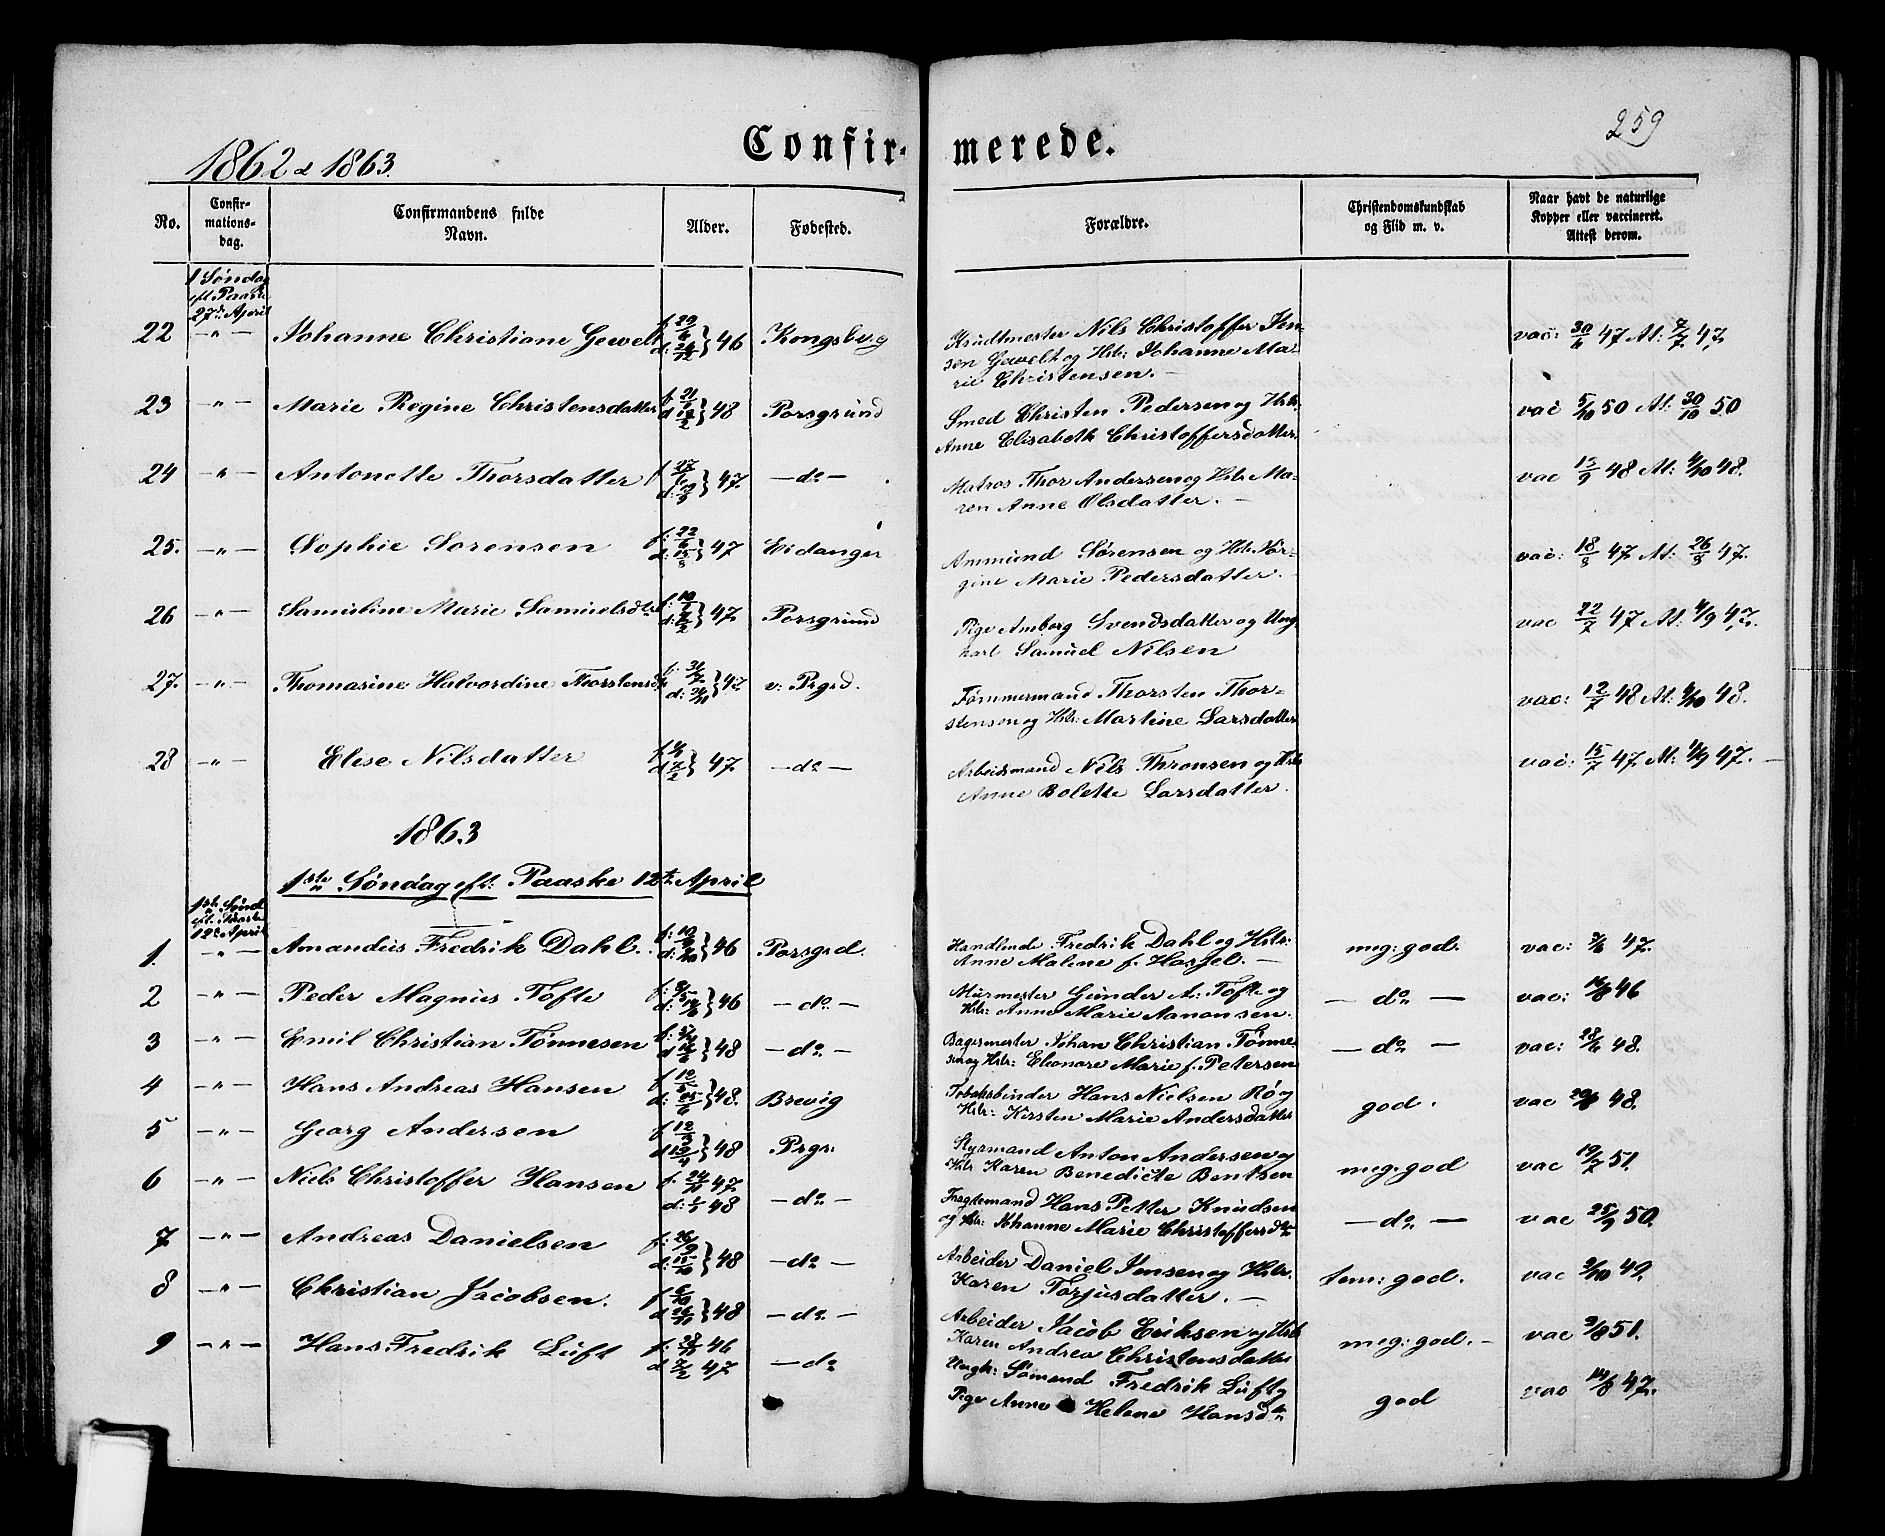 259
Confir- merede.
1862 & 1863.
No. Confir-mations-dag. Confirmandens fulde Navn. Alder. Fødested. Forældre. Christendomskundskab og Flid m. v. Naar havt de naturlige Kopper eller vaccineret. Attest derom.
1 Søndag
eft Paaske
27de April
22 —"— Johanne Christiane Gewelt 46 Kongsberg Nils Christoffer Jen-
sen Gewelt og Hstr: Johanne Ma-
rie Christensen. — vac: 30/6 47 At: 7/7 47
23 —"— Marie Regine Christensdatter 48 Porsgrund Smed Christen Pedersen og Hstr:
Anne Elisabeth Christoffersdatter. vac 5/10 50 At: 30/10 50
24 —"— Antonette Thorsdatter 47. —do— Matros Thor Andersen og Hstr Ma-
ren Anne Olsdatter. — vac 13/9 48 At: 4/10 48.
25. —"— Sophie Sørensen f: 22/6 d: 15/8 47 Eidanger Ammund Sørensen og Hstr: Jør-
gine Marie Pedersdatter. — vac: 18/8 47 At: 26/8 47.
26 —"— Samueline Marie Samuelsdtr 47. Porsgrund Pige Amborg Svendsdatter og Ung-
karl Samuel Nilsen vac 22/7 47 At: 4/9 47.
27. —"— Thomasine Halvordine Thorstensdtr 47 v: Prgrd. Tømmermand Thorsten Thor-
stensen og Hstr: Martine Larsdatter vac: 12/7 48 At: 4/10 48.
28 —"— Elese Nilsdatter 47. —do— Arbeidsmand Nils Thronsen og Hstr
Anne Bolette Larsdatter. vac: 15/7 47 At: 47. —
1863
1ste Søndag eft: Paaske 12te April
1ste Sønd
eft. Paaske
12te April
1. —"— Amandus Fredrik Dahl. 46 Porsgrd. Handlende Fredrik Dahl og Hstr:
Anne Malene f. — meg: god. vac: 47.
2 —"— Peder Magnus Tofte 46 —do— Murmester Gunder A: Tofte og
Hstr: Anne Marie Aanonsen. —do— vac: 46
3 —"— Emil Christian Tønnesen 48 —do— Bagermester Johan Christian Tønne-
sen og Hstr: Eleonore Marie f. Petersen —do— vac: 28/6 48.
4 —"— Hans Andreas Hansen 48. Brevig Hans Nielsen Rø og
Hstr: Kirsten Marie Andersdatter god. vac 48.
5 —"— Georg Andersen f 12/3 48 Prgr: Styrmand Anton Andersen og
Hstr. Karen Benedicte Bentsen meg: god vac 19/7 51.
6 —"— Niels Christoffer Hansen 47.
48 —do— Fragtemand Hans Petter Knudsen
og Hstr: Johanne Marie Christoffersdtr —do— vac 25/9 50.
7. —"— Andreas Danielsen f: 26/9 d: 15/10 48 —do— Arbeider Daniel Jensen og Hstr.
Karen Torjusdatter. — tem: god. vac 49.
8 —"— Christian Jacobsen. 48 —do— Arbeider Jacob Eriksen og Hstr
Karen Andrea Christensdatter meg: god. — vac 51.
9 —"— Hans Fredrik Luft 46
d 7/2 47 —do Ungk: Sømand Fredrik Luft og
Pige Anne Helene Hansdtr god vac 47.